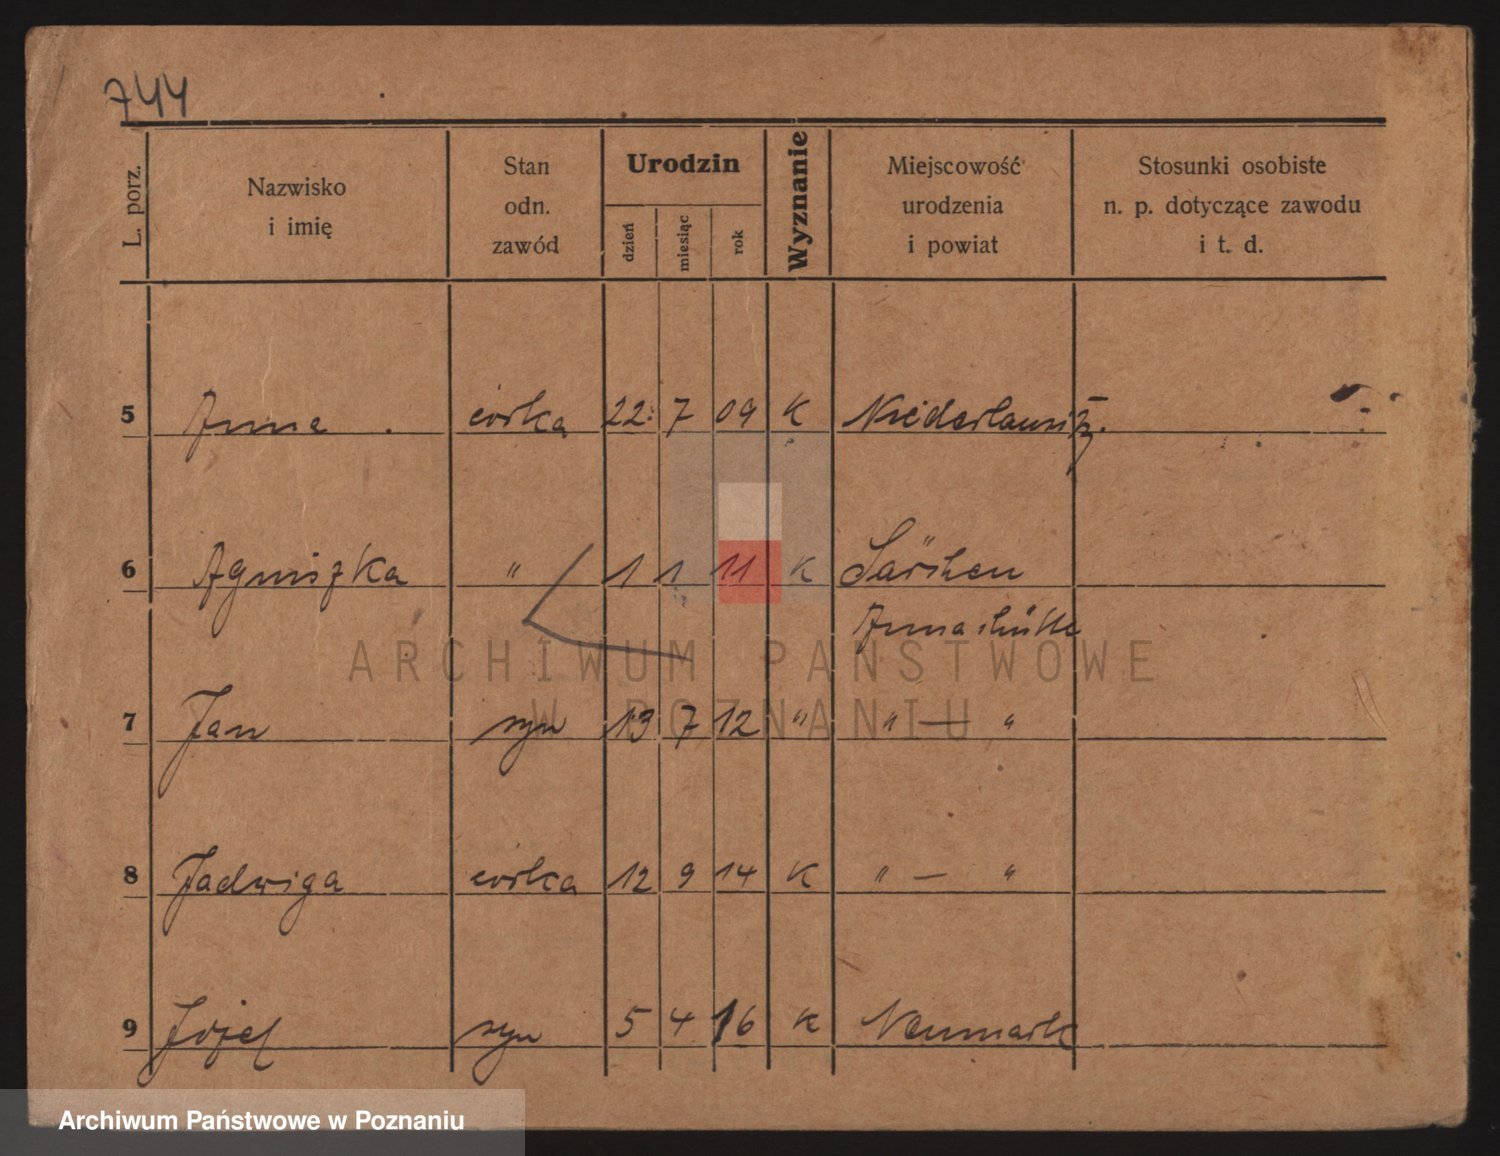 744
L. porz.
Nazwisko
i imię
Stan
odn.
zawód
Urodzin
dzień
miesiąc
rok
Wyznanie
Miejscowość
urodzenia
i powiat
Stosunki osobiste
n. p. dotyczące zawodu
i t. d.
5 Anna córka 22 7 09 K Niederlausitz.
6 Agniszka " 1 1 11 K Särchen
Annahütte
ARCHIWUM PAŃSTWOWE
W POZNANIU
7 Jan syn 13 7 12 " " — "
8 Jadwiga córka 12 9 14 K " — "
9 Józef syn 5 4 16 K Neumark
Archiwum Państwowe w Poznaniu